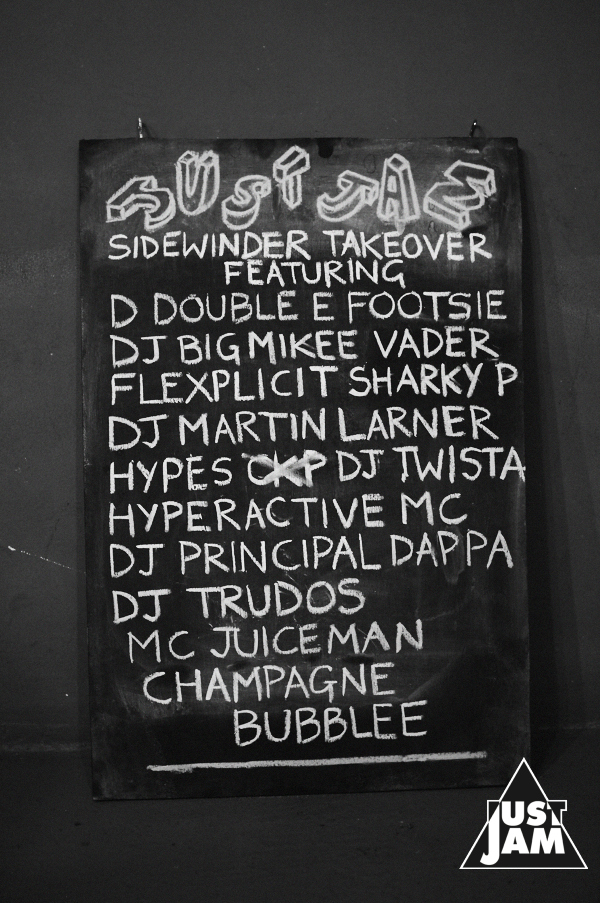 JUST JAM
SIDEWINDER TAKEOVER
FEATURING
D DOUBLE E FOOTSIE
DJ BIG MIKEE VADER
FLEXPLICIT SHARKY P
DJ MARTIN LARNER
HYPES DJ TWISTA
HYPERACTIVE MC
DJ PRINCIPAL DAPPA
DJ TRUDOS
MC JUICEMAN
CHAMPAGNE
BUBBLEE
JUST
JAM